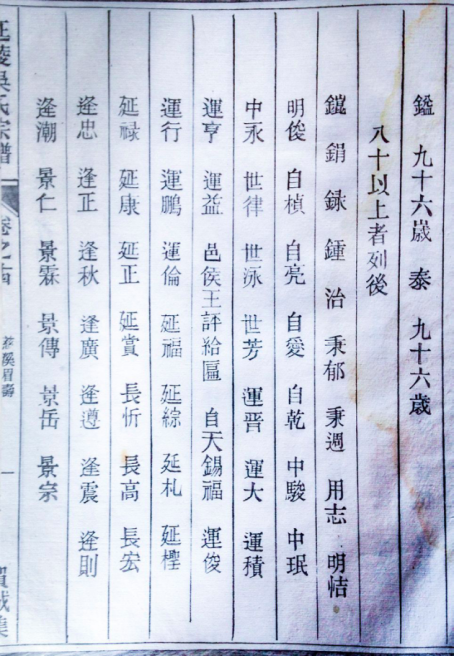 鎰 九十六歲 泰 九十六歲
八十以上者列後
鎧 鋗 録 鍾 治 秉郁 秉週 用志 明㤖
明俊 自楨 自亮 自愛 自乾 中駿 中珉
中永 世律 世泳 世芳 運晋 運大 運積
運亨 運益 邑侯王評給匾 自天錫福 運俊
運行 運鵬 運倫 延福 延綜 延札 延樫
延禄 延康 延正 延賞 長忻 長高 長宏
逢忠 逢正 逢秋 逢廣 逢遵 逢震 逢則
逢潮 景仁 景霖 景傳 景岳 景宗
延陵吳氏宗譜 卷之 溪眉壽 一